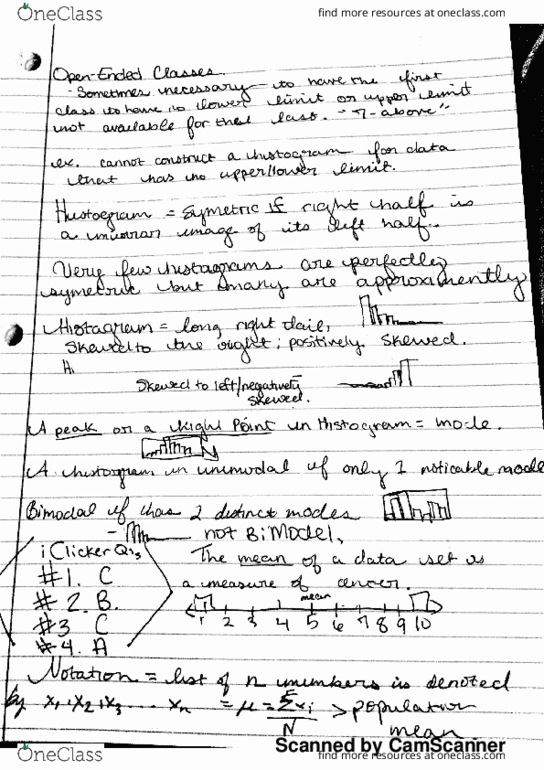 OneClass
find more resources at oneclass.com
Open-Ended Classes
- Sometimes necessary to have the first
class to have no lower limit or upper limit
not available for the last. - "7-above"
ex. cannot construct a histogram for data
that has no upper/lower limit.
Histoegram = Symetric IF right half is
a mirrar image of its left half..
Very few histagrams are perfectly
symetric but many are approximently
Histagram = long right tail,
Skewed to the right; positively skewed.
Skewed to left/negatively
skewed.
A peak or a hight Point in Histogram = mode.
A histogram in unimodal if only 1 noticable mode
Bimodal if has 2 distinct modes
- not BiModel,
iClicker Q's
#1. C
#2. B.
#3 C
#4. A
The mean of a data set is
a measure of cencer.
mean
1 2 3 4 5 6 7 8 9 10
Notation = list of n numbers is denoted
by x₁, x₂, x₃ .... xₙ = μ = Σxᵢ / N > population
mean
Scanned by CamScanner
OneClass
find more resources at oneclass.com